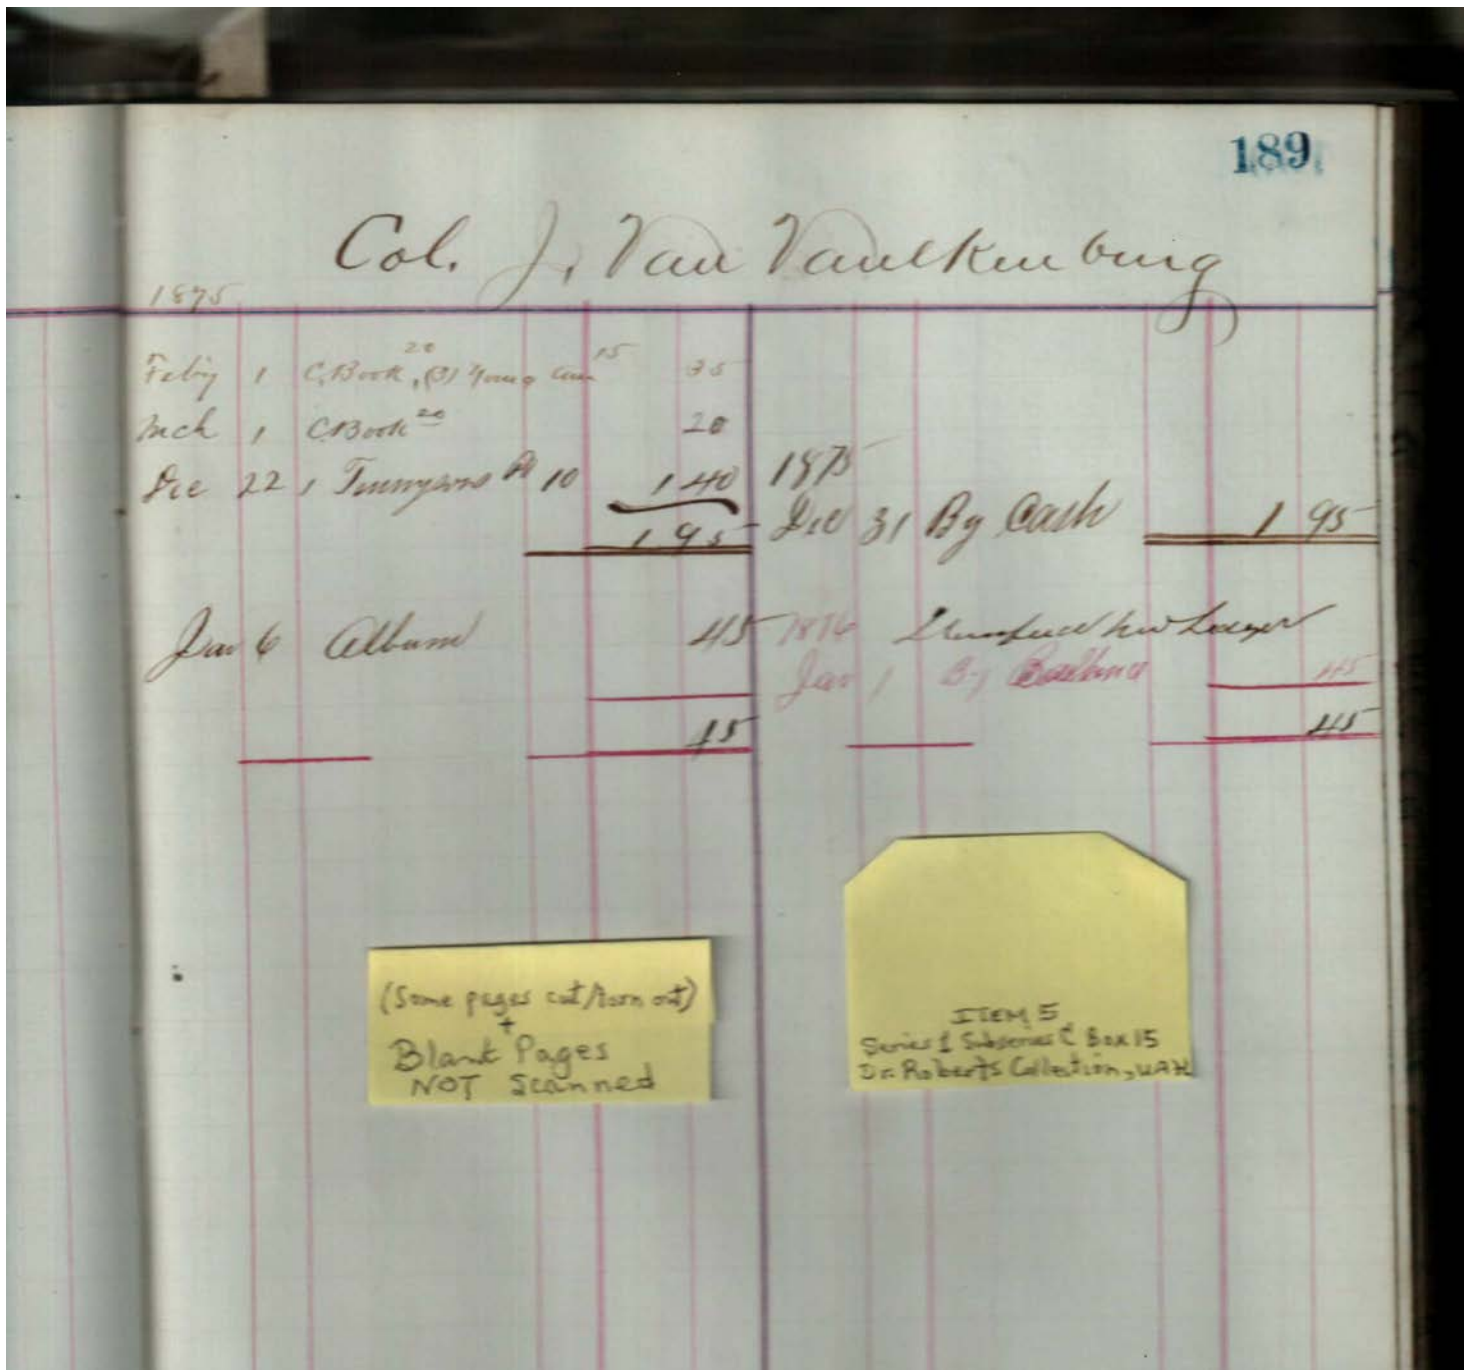 189
Col. J. Van Vaulkenburg
1875
Feby 1 C. Book, 20 (3) Young 15 35
Mch 1 C Book 20 20
Dec 22 1 Tennysons 10 1 40
1 95
1875
Dec 31 By Cash 1 95
Jan 6 Album 45
1876 New Ledger
Jan 1 By Ballance 45
45
45
(Some pages cut/torn out)
+
Blank Pages
NOT Scanned
ITEM 5
Series 1 Subseries C Box 15
Dr. Roberts Collection, UAH